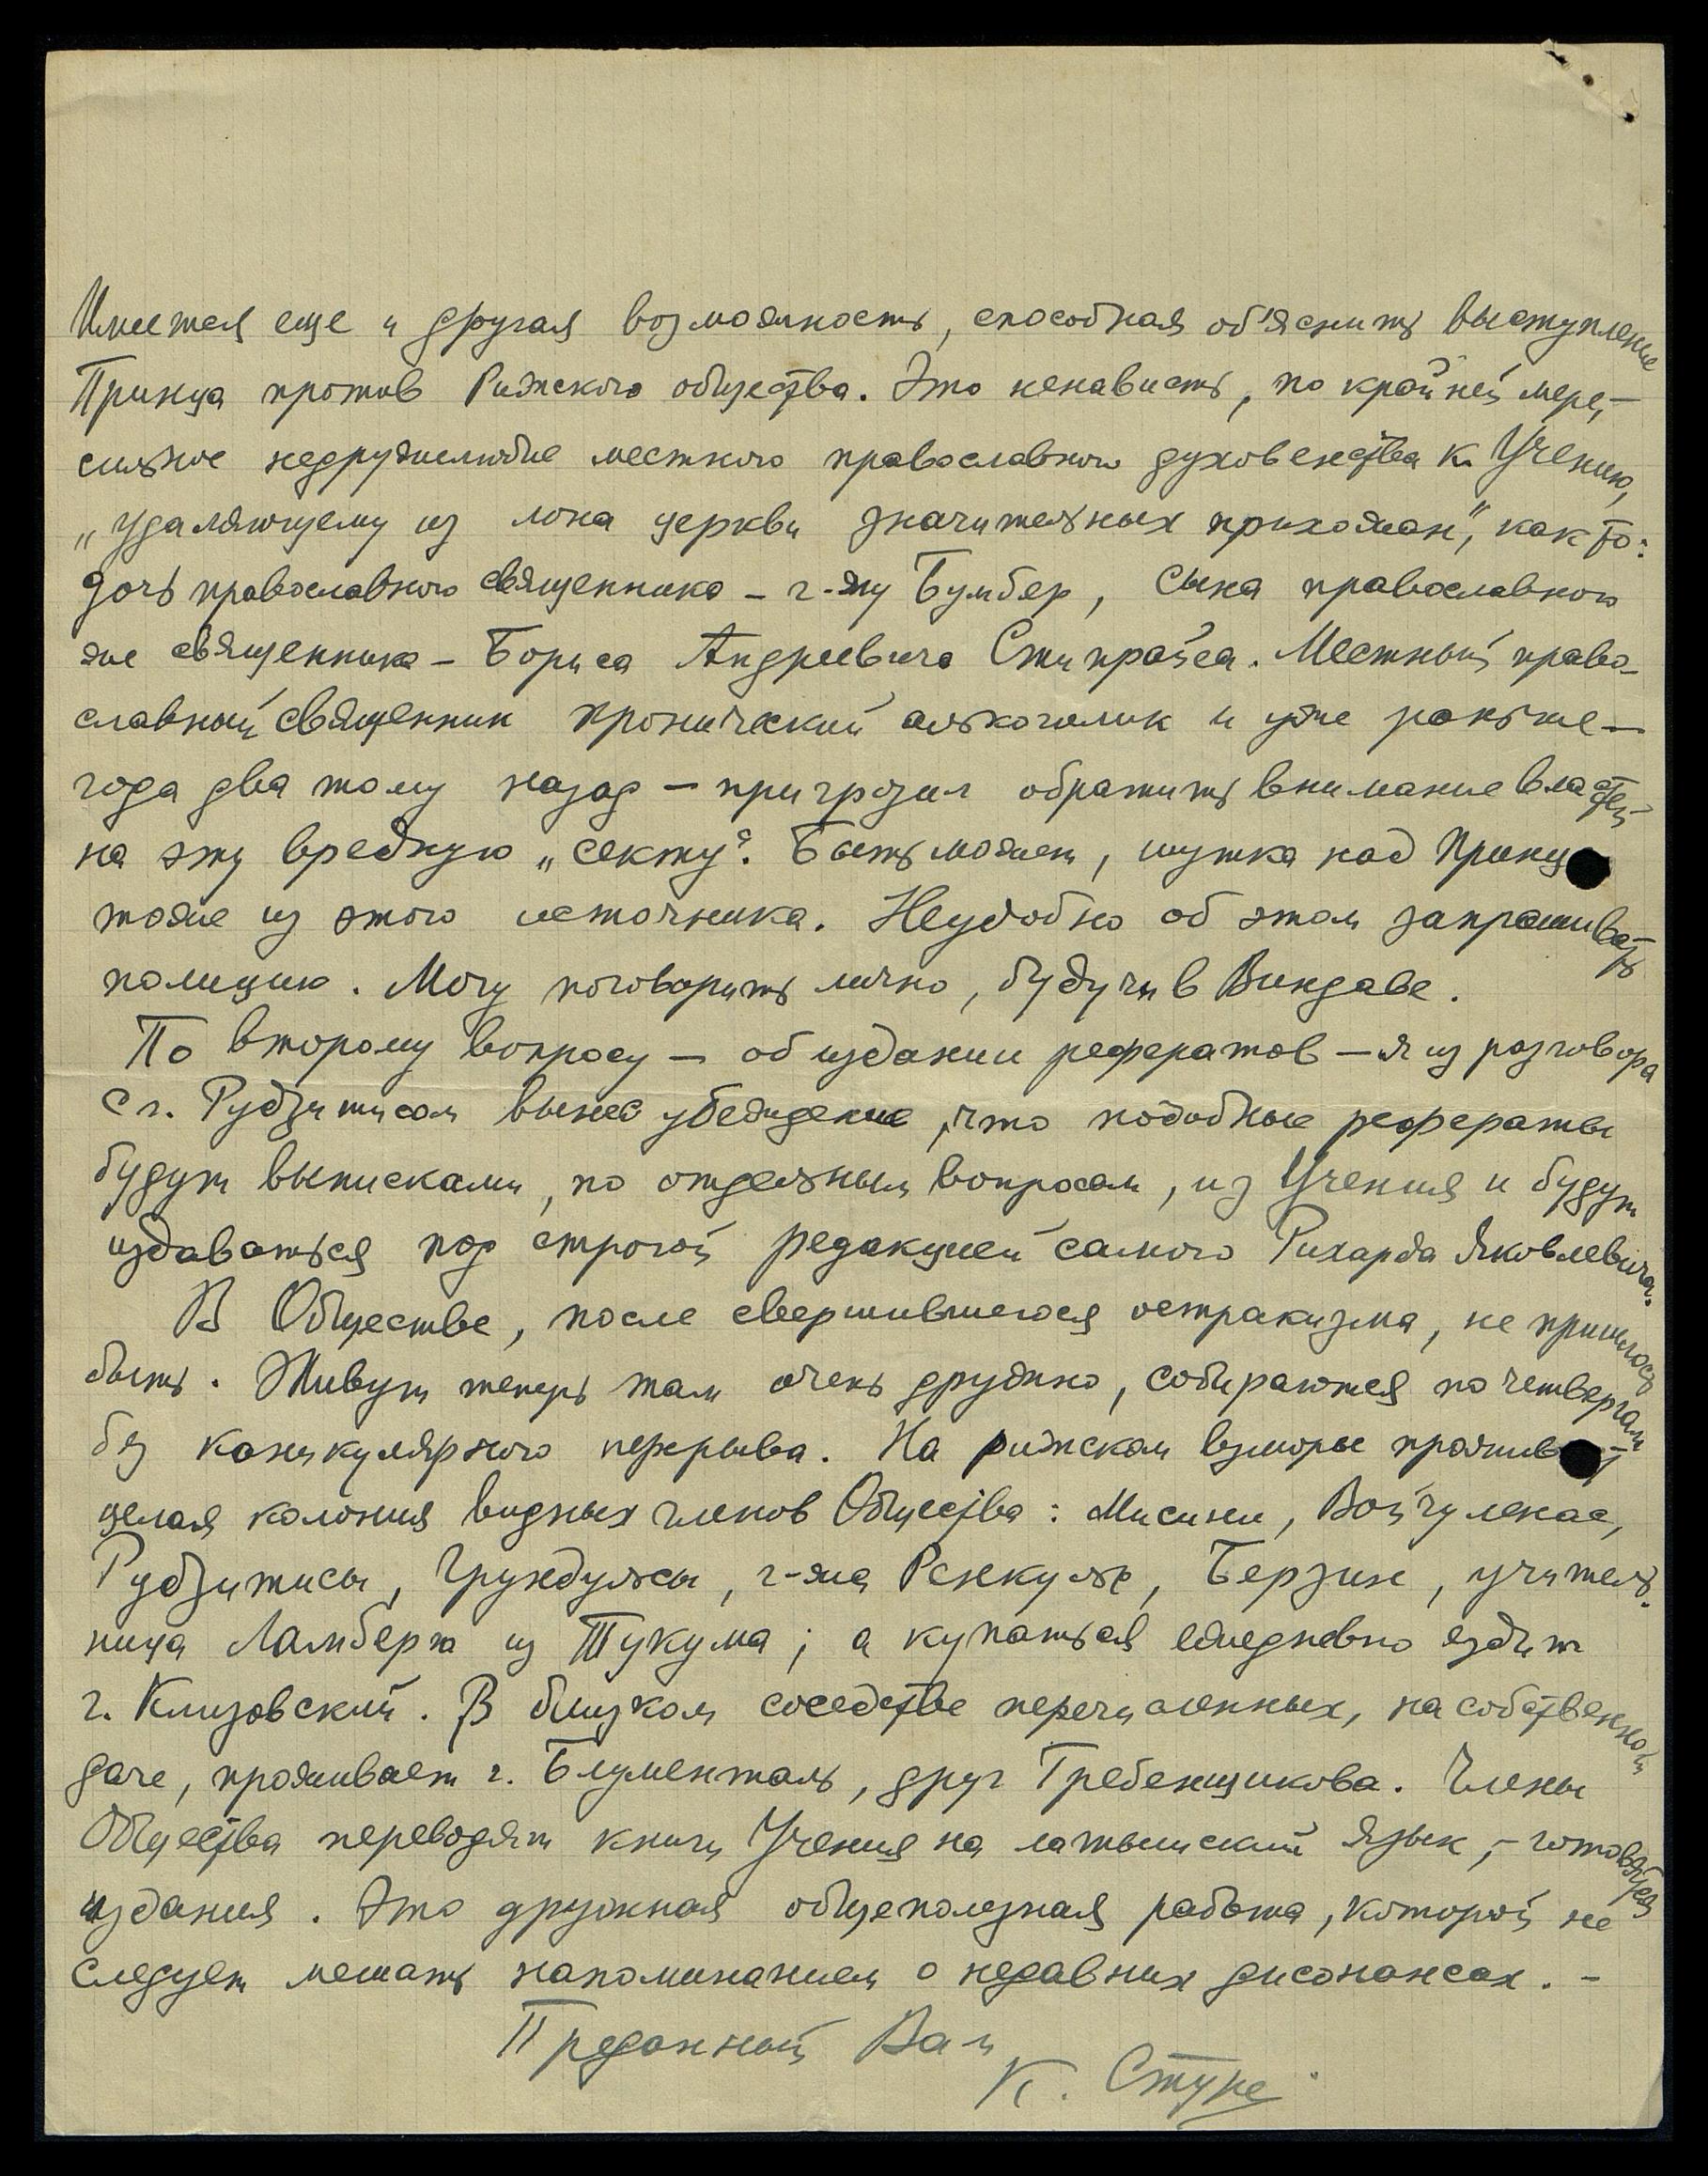 Имеется еще и другая возможность, способная об'яснить выступление
Принца против Рижского общества. Это ненависть, по крайней мере, –
сильное недружелюбие местного православного духовенства к Учению,
„удаляющему из лона церкви значительных прихожан", как то:
дочь православного священника – г-жу Бумбер, сына православного
же священника – Бориса Андреевича Стипрайса. Местный право-
славный священник хронический алькоголик и уже раньше –
года два тому назад – пригрозил обратить внимание властей
на эту вредную „секту". Быть может, шутка над Принц
тоже из этого источника. Неудобно об этом запрашивать
полицию. Могу поговорить лично, будучи в Виндаве.
По второму вопросу – об издании рефератов – я из разговора
с г. Рудзитисом вынес убеждение, что подобные рефераты
будут выписками, по отдельным вопросам, из Учения и будут
издаваться под строгой редакцией самого Рихарда Яковлевича.
В Обществе, после свершившегося остракизма, не пришлось
быть. Живут теперь там очень дружно, собираются по четвергам
без каникулярного перерыва. На рижском взморье прожив т
целая колония видных членов Общества: Мисини, Войчуленас,
Рудзитисы, Грундульсы, г-жа Ренкуль, Берзин, учитель-
ница Ламберт из Тукума; а купаться ежедневно ездит
г. Клизовский. В близком соседстве перечисленных, на собственной
даче, проживает г. Блументаль, друг Гребенщикова. Члены
Общества переводят книги Учения на латышский язык, – готовятся
издания. Это дружная общеполезная работа, которой не
следует мешать напоминанием о недавних дисонансах. –
Преданный Вам
К. Стуре